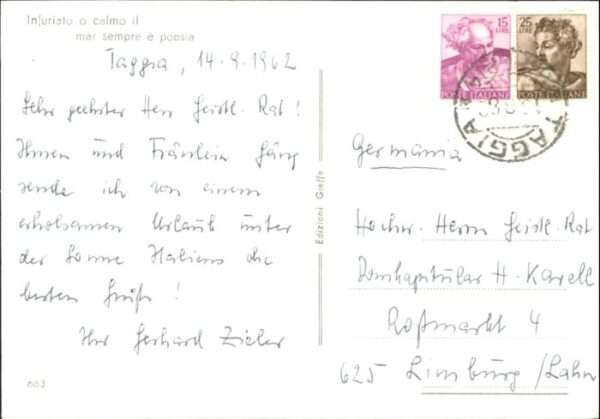 Infuriato o calmo il
mar sempre è poesia
Taggia, 14.9.1962
Sehr geehrter Herr Geistl. Rat!
Ihnen und Fräulein
sende ich von einem
erholsamen Urlaub unter
der Sonne Italiens die
besten Grüße!
Ihr Gerhard Zieler
663
Edizioni Gieffe
15
LIRE
POSTE ITALIANE
25
LIRE
POSTE ITALIANE
TAGGIA
Germania
Hochw. Herrn Geistl. Rat
Domkapitular H. Karell
Roßmarkt 4
625 Limburg/Lahn